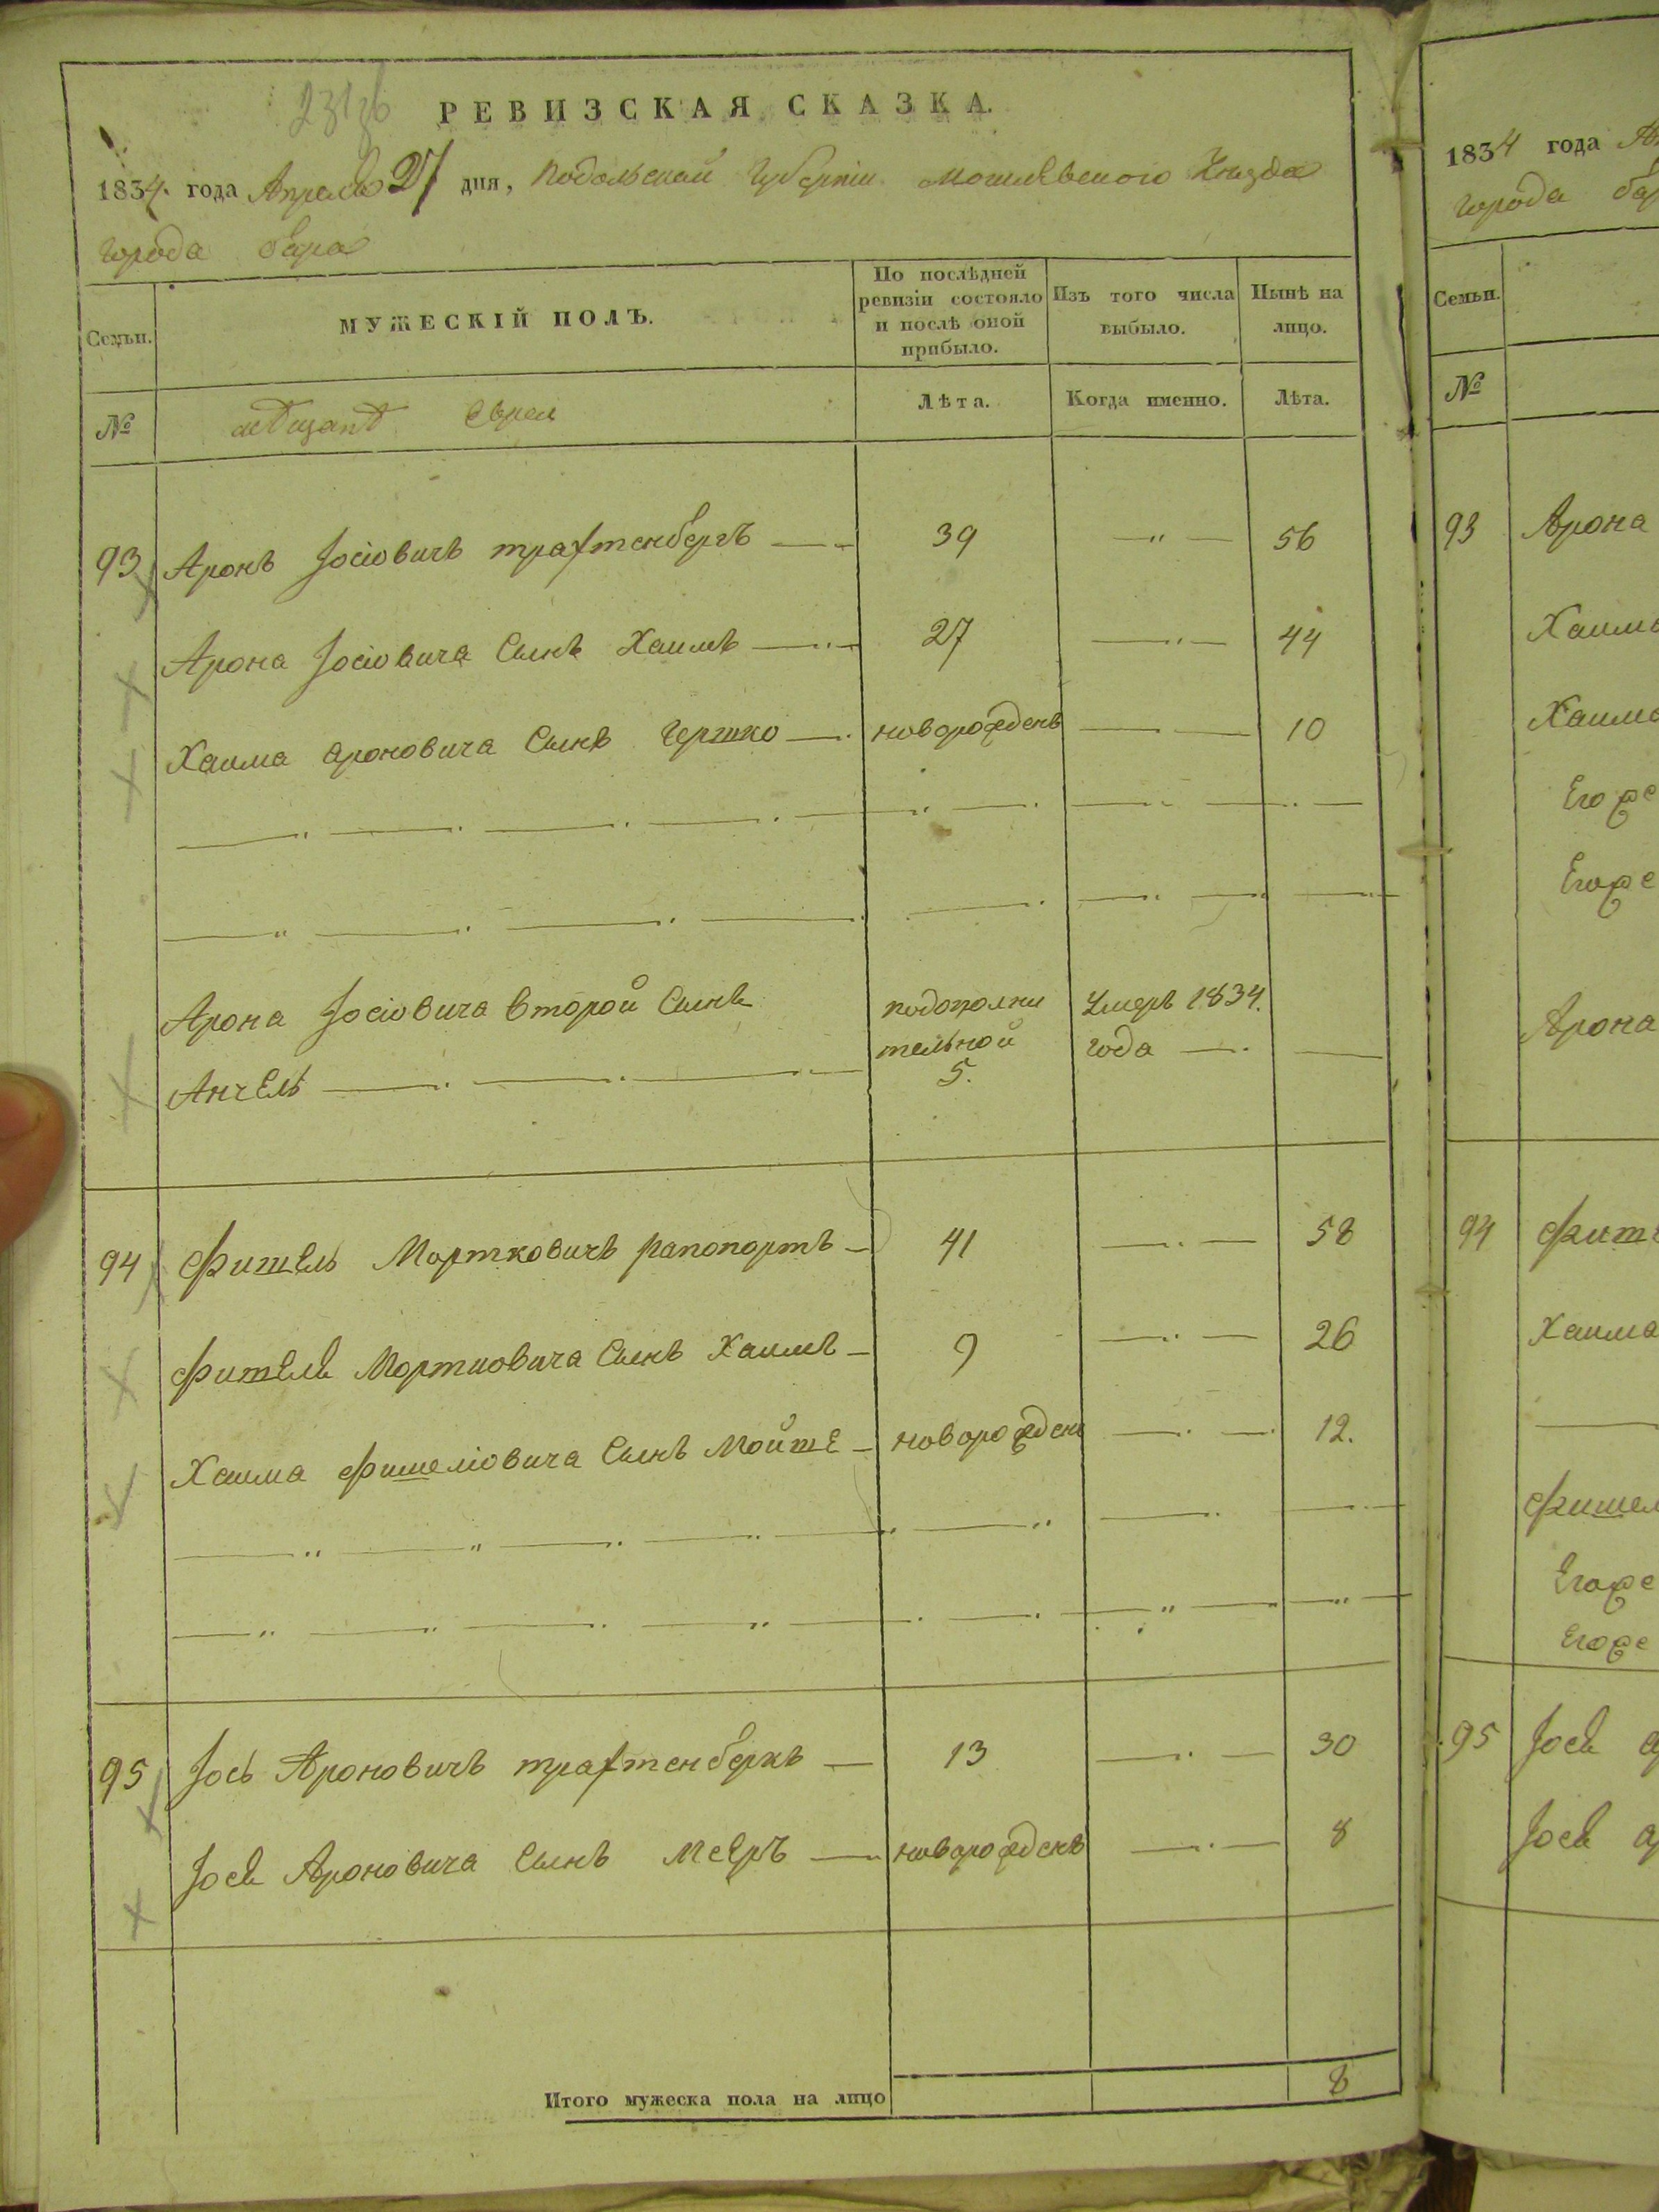 РЕВИЗСКАЯ СКАЗКА.
1834 года Апреля 27 дня, Подольской Губернии Могилевского Уезда
города бара
Семьи.
МУЖЕСКІЙ ПОЛЪ.
По послѣдней ревизіи состояло и послѣ оной прибыло.
Изъ того числа выбыло.
Нынѣ на лицо.
№
мѣщанѣ Евреи
Лѣта.
Когда именно.
Лѣта.
93 Аронъ Іосіовичъ трахтенбергъ 39 56
Арона Іосіовича Сынъ Хаимъ 27 44
Хаима ароновича Сынъ Гершко новорожденъ 10
Арона Іосіовича второй Сынъ подополни Умеръ 1834.
Анчель тельной года
5.
94 Фишель Мортковичъ рапопортъ 41 58
Фишеля Мортковича Сынъ Хаимъ 9 26
Хаима Фишеліовича Сынъ Мойше новорожденъ 12.
95 Іось Ароновичъ трахтенберкъ 13 30
Іося Ароновича Сынъ Мееръ новорожденъ 8
Итого мужеска пола на лицо 8
1834 года
города
Семьи.
№
93 Арона
Арона
94
Хаима
95 Іося
Іося